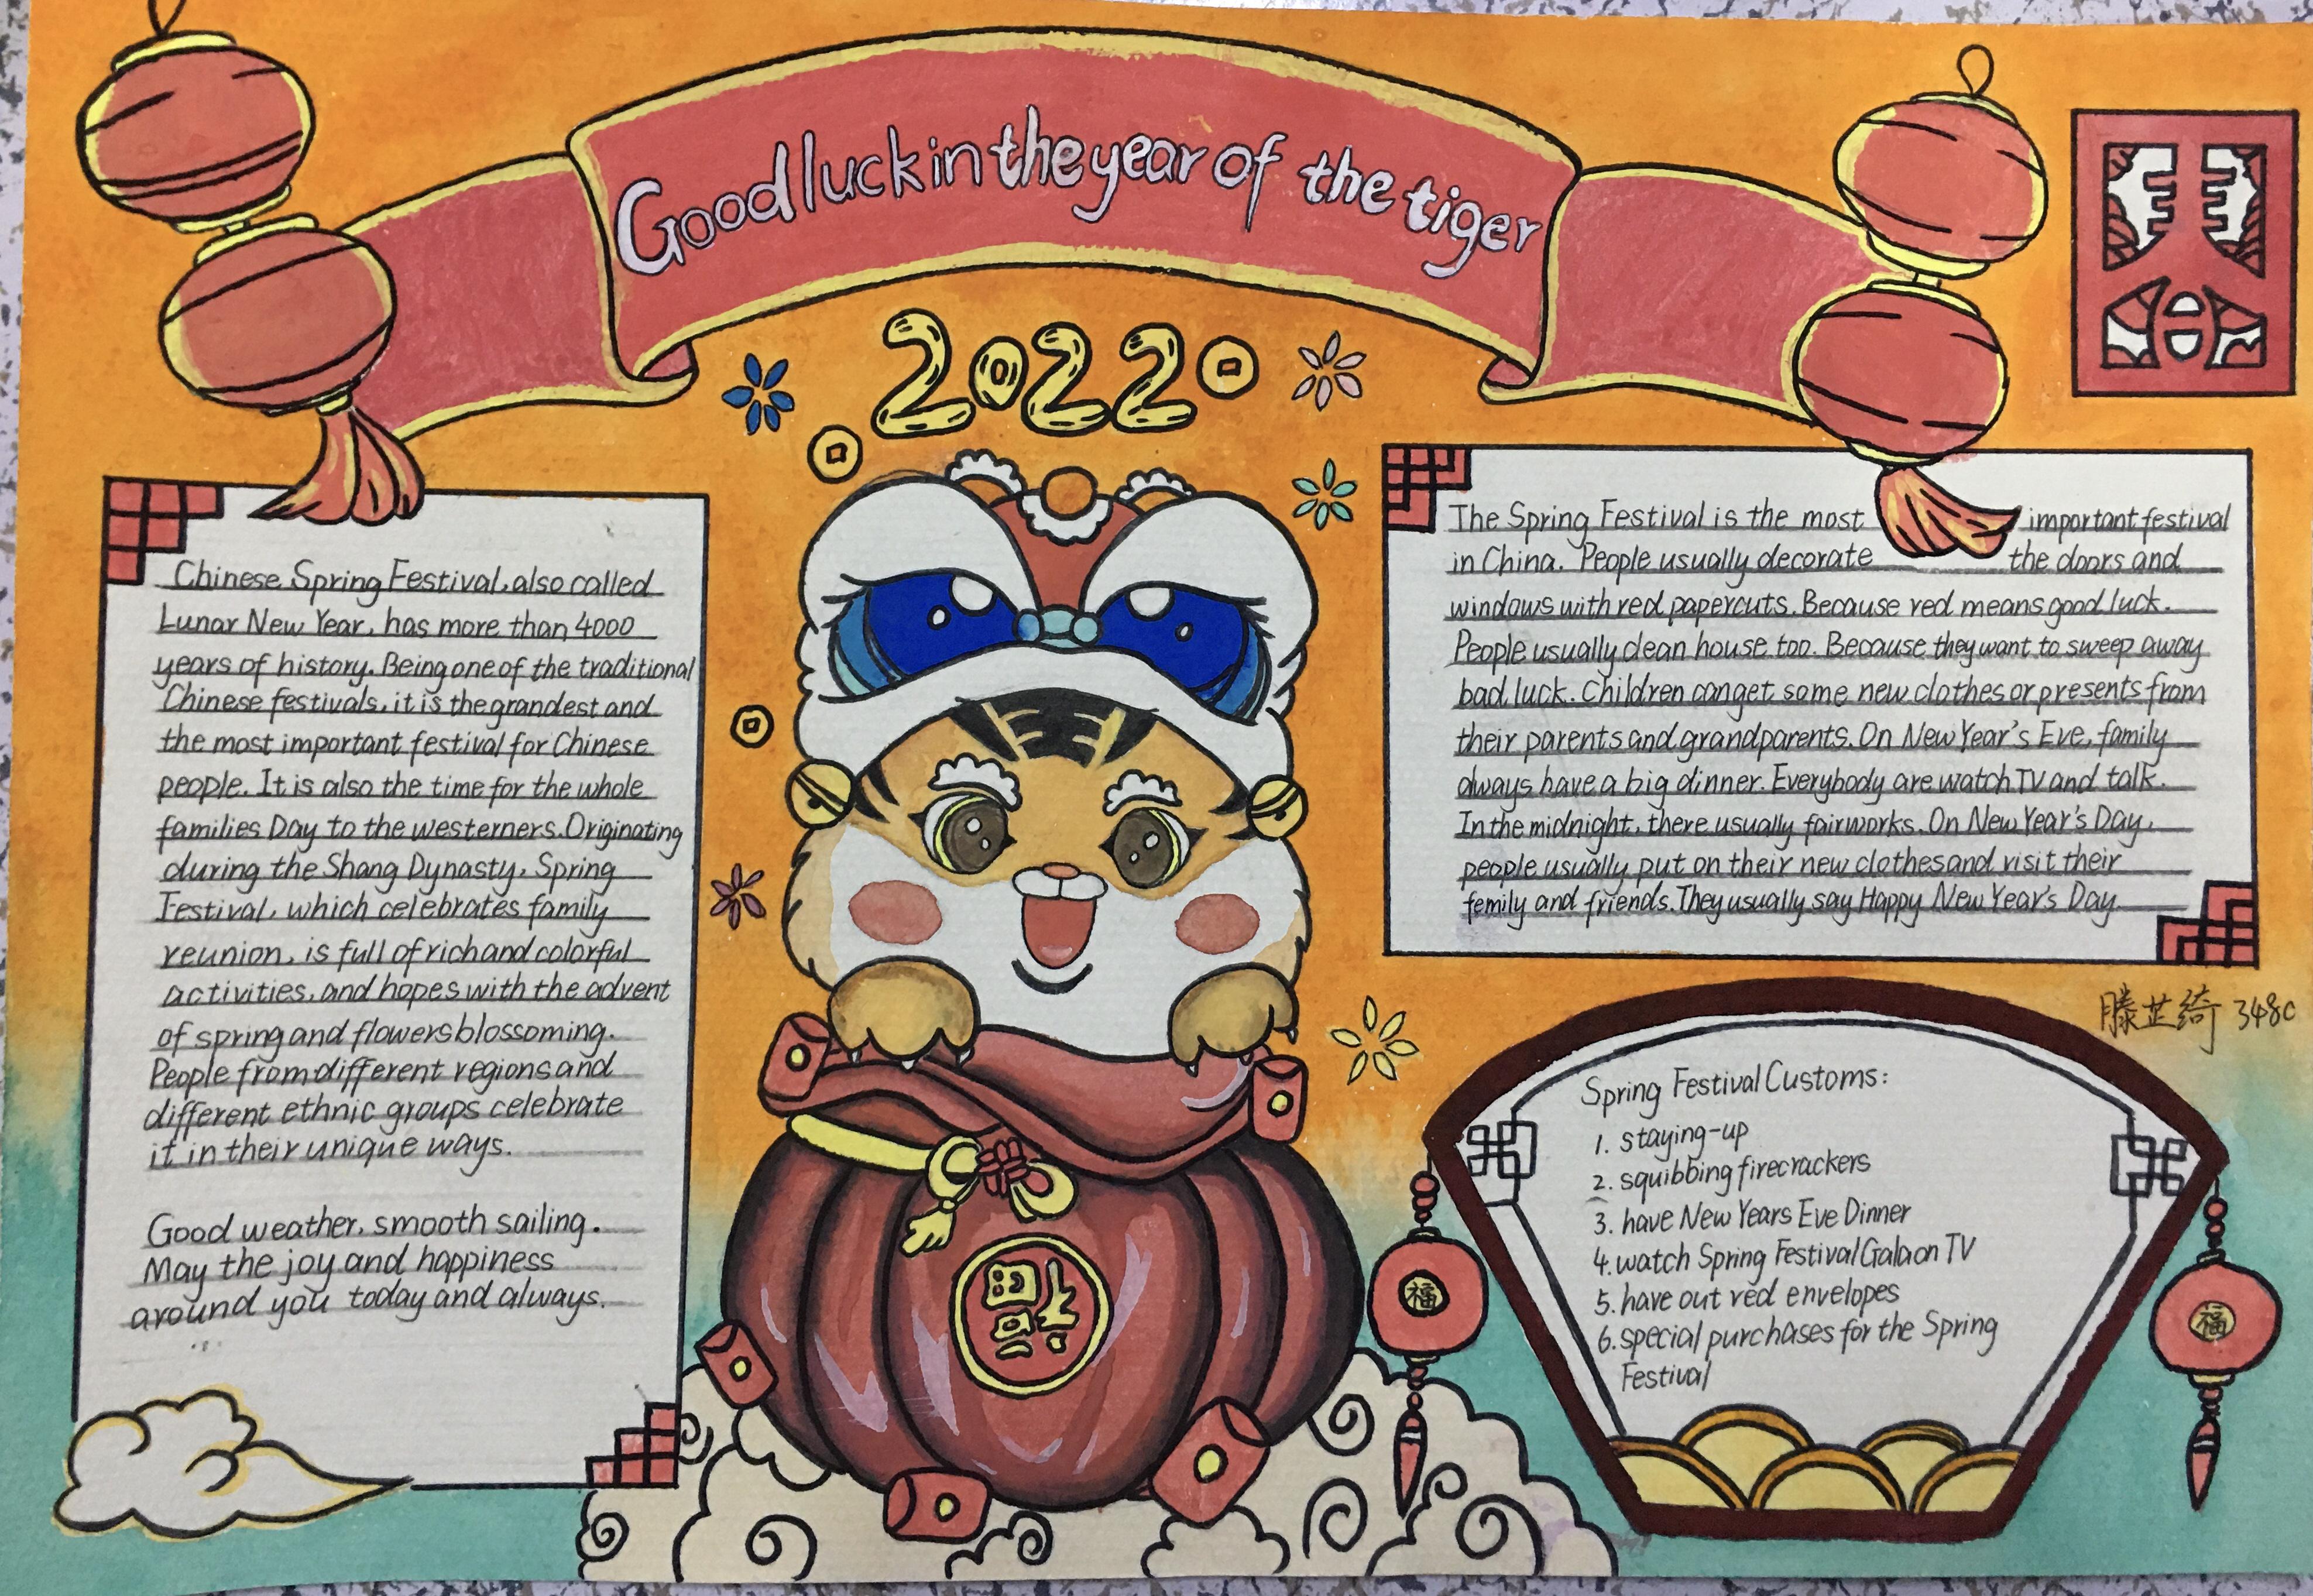 Good luck in the year of the tiger
2022
春
Chinese Spring Festival, also called
Lunar New Year, has more than 4000
years of history. Being one of the traditional
Chinese festivals, it is the grandest and
the most important festival for Chinese
people. It is also the time for the whole
families Day to the westerners. Originating
during the Shang Dynasty, Spring
Festival, which celebrates family
reunion, is full of rich and colorful
activities, and hopes with the advent
of spring and flowers blossoming.
People from different regions and
different ethnic groups celebrate
it in their unique ways.
Good weather, smooth sailing.
May the joy and happiness
around you today and always.
...
The Spring Festival is the most important festival
in China. People usually decorate the doors and
windows with red papercuts. Because red means good luck.
People usually clean house too. Because they want to sweep away
bad luck. Children can get some new clothes or presents from
their parents and grandparents. On New Year's Eve, family
always have a big dinner. Everybody are watch TV and talk.
In the midnight, there usually fairworks. On New Year's Day,
people usually put on their new clothes and visit their
femily and friends. They usually say Happy New Year's Day.
滕芷绮 348C
Spring Festival Customs:
1. staying-up
2. squibbing firecrackers
3. have New Years Eve Dinner
4. watch Spring Festival Gala on TV
5. have out red envelopes
6. special purchases for the Spring
Festival
福
福
福